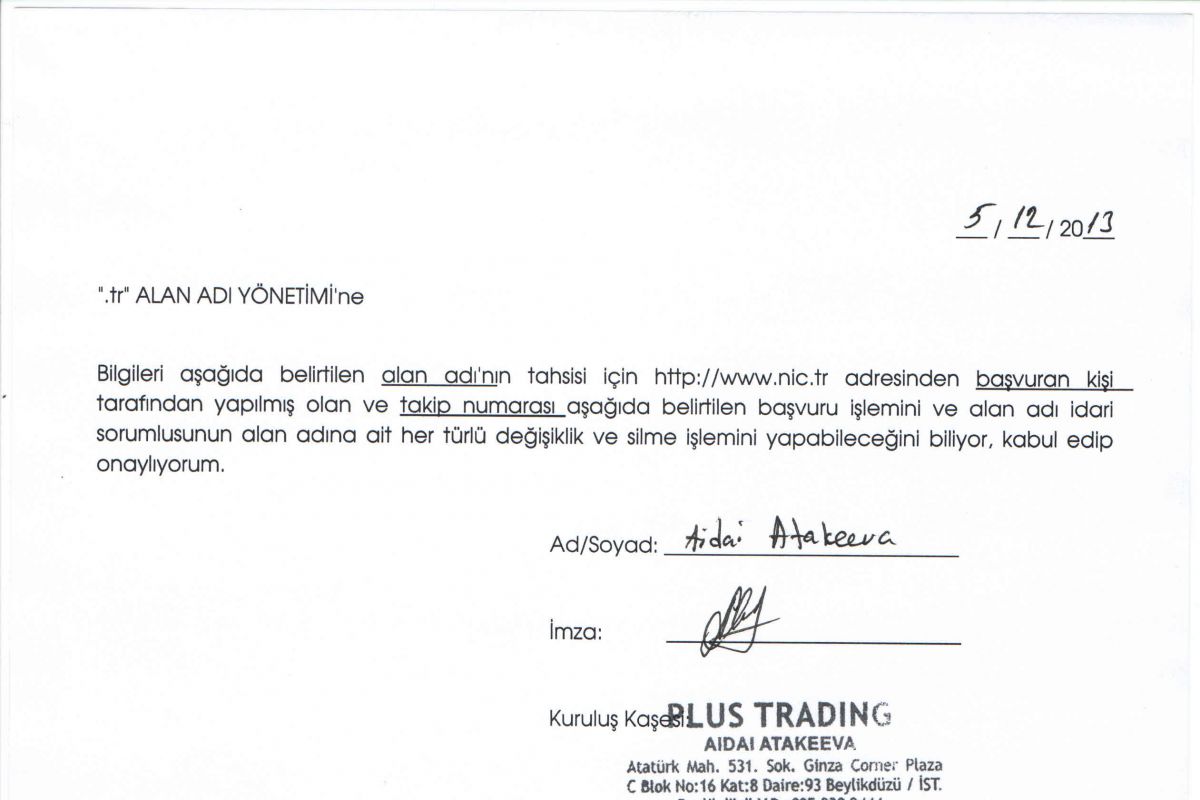 5 / 12 / 2013
".tr" ALAN ADI YÖNETİMİ'ne
Bilgileri aşağıda belirtilen alan adı'nın tahsisi için http://www.nic.tr adresinden başvuran kişi
tarafından yapılmış olan ve takip numarası aşağıda belirtilen başvuru işlemini ve alan adı idari
sorumlusunun alan adına ait her türlü değişiklik ve silme işlemini yapabileceğini biliyor, kabul edip
onaylıyorum.
Ad/Soyad: Aidai Atakeeva
İmza:
Kuruluş Kaşesi: PLUS TRADING
AIDAI ATAKEEVA
Atatürk Mah. 531. Sok. Ginza Corner Plaza
C Blok No:16 Kat:8 Daire:93 Beylikdüzü / İST.